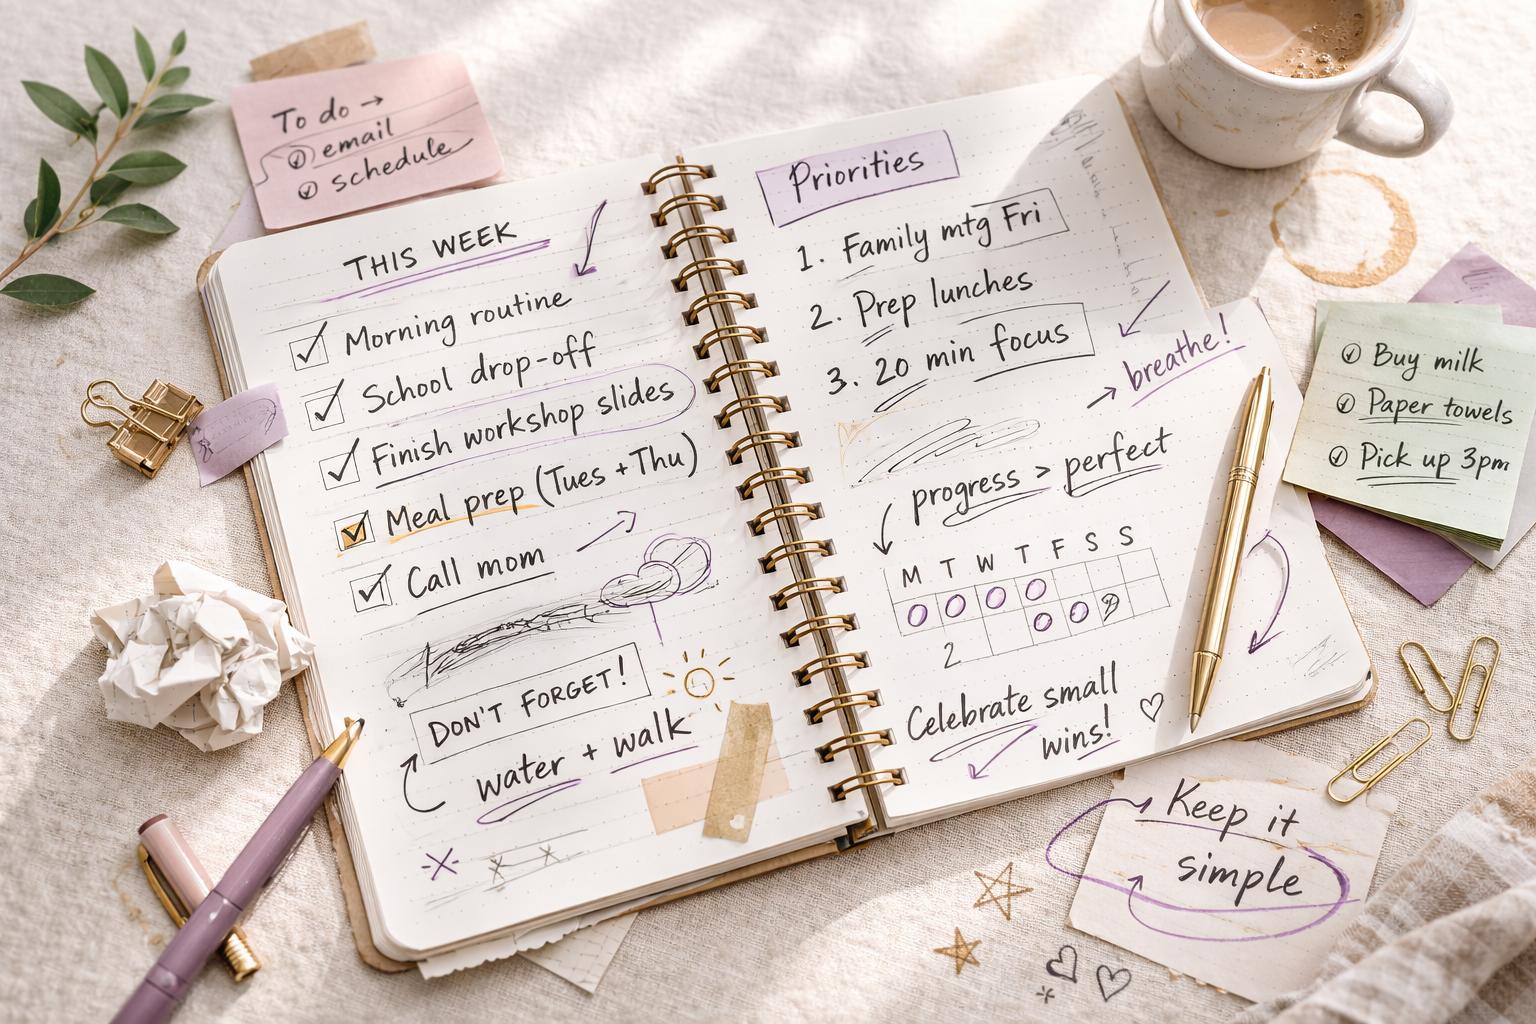 To do →
email
schedule
THIS WEEK
Morning routine
School drop-off
Finish workshop slides
Meal prep (Tues + Thu)
Call mom
DON'T FORGET!
water + walk
Priorities
1. Family mtg Fri
2. Prep lunches
3. 20 min focus
→ breathe!
progress > perfect
M T W T F S S
2
Celebrate small
wins!
Buy milk
Paper towels
Pick up 3pm
Keep it
simple